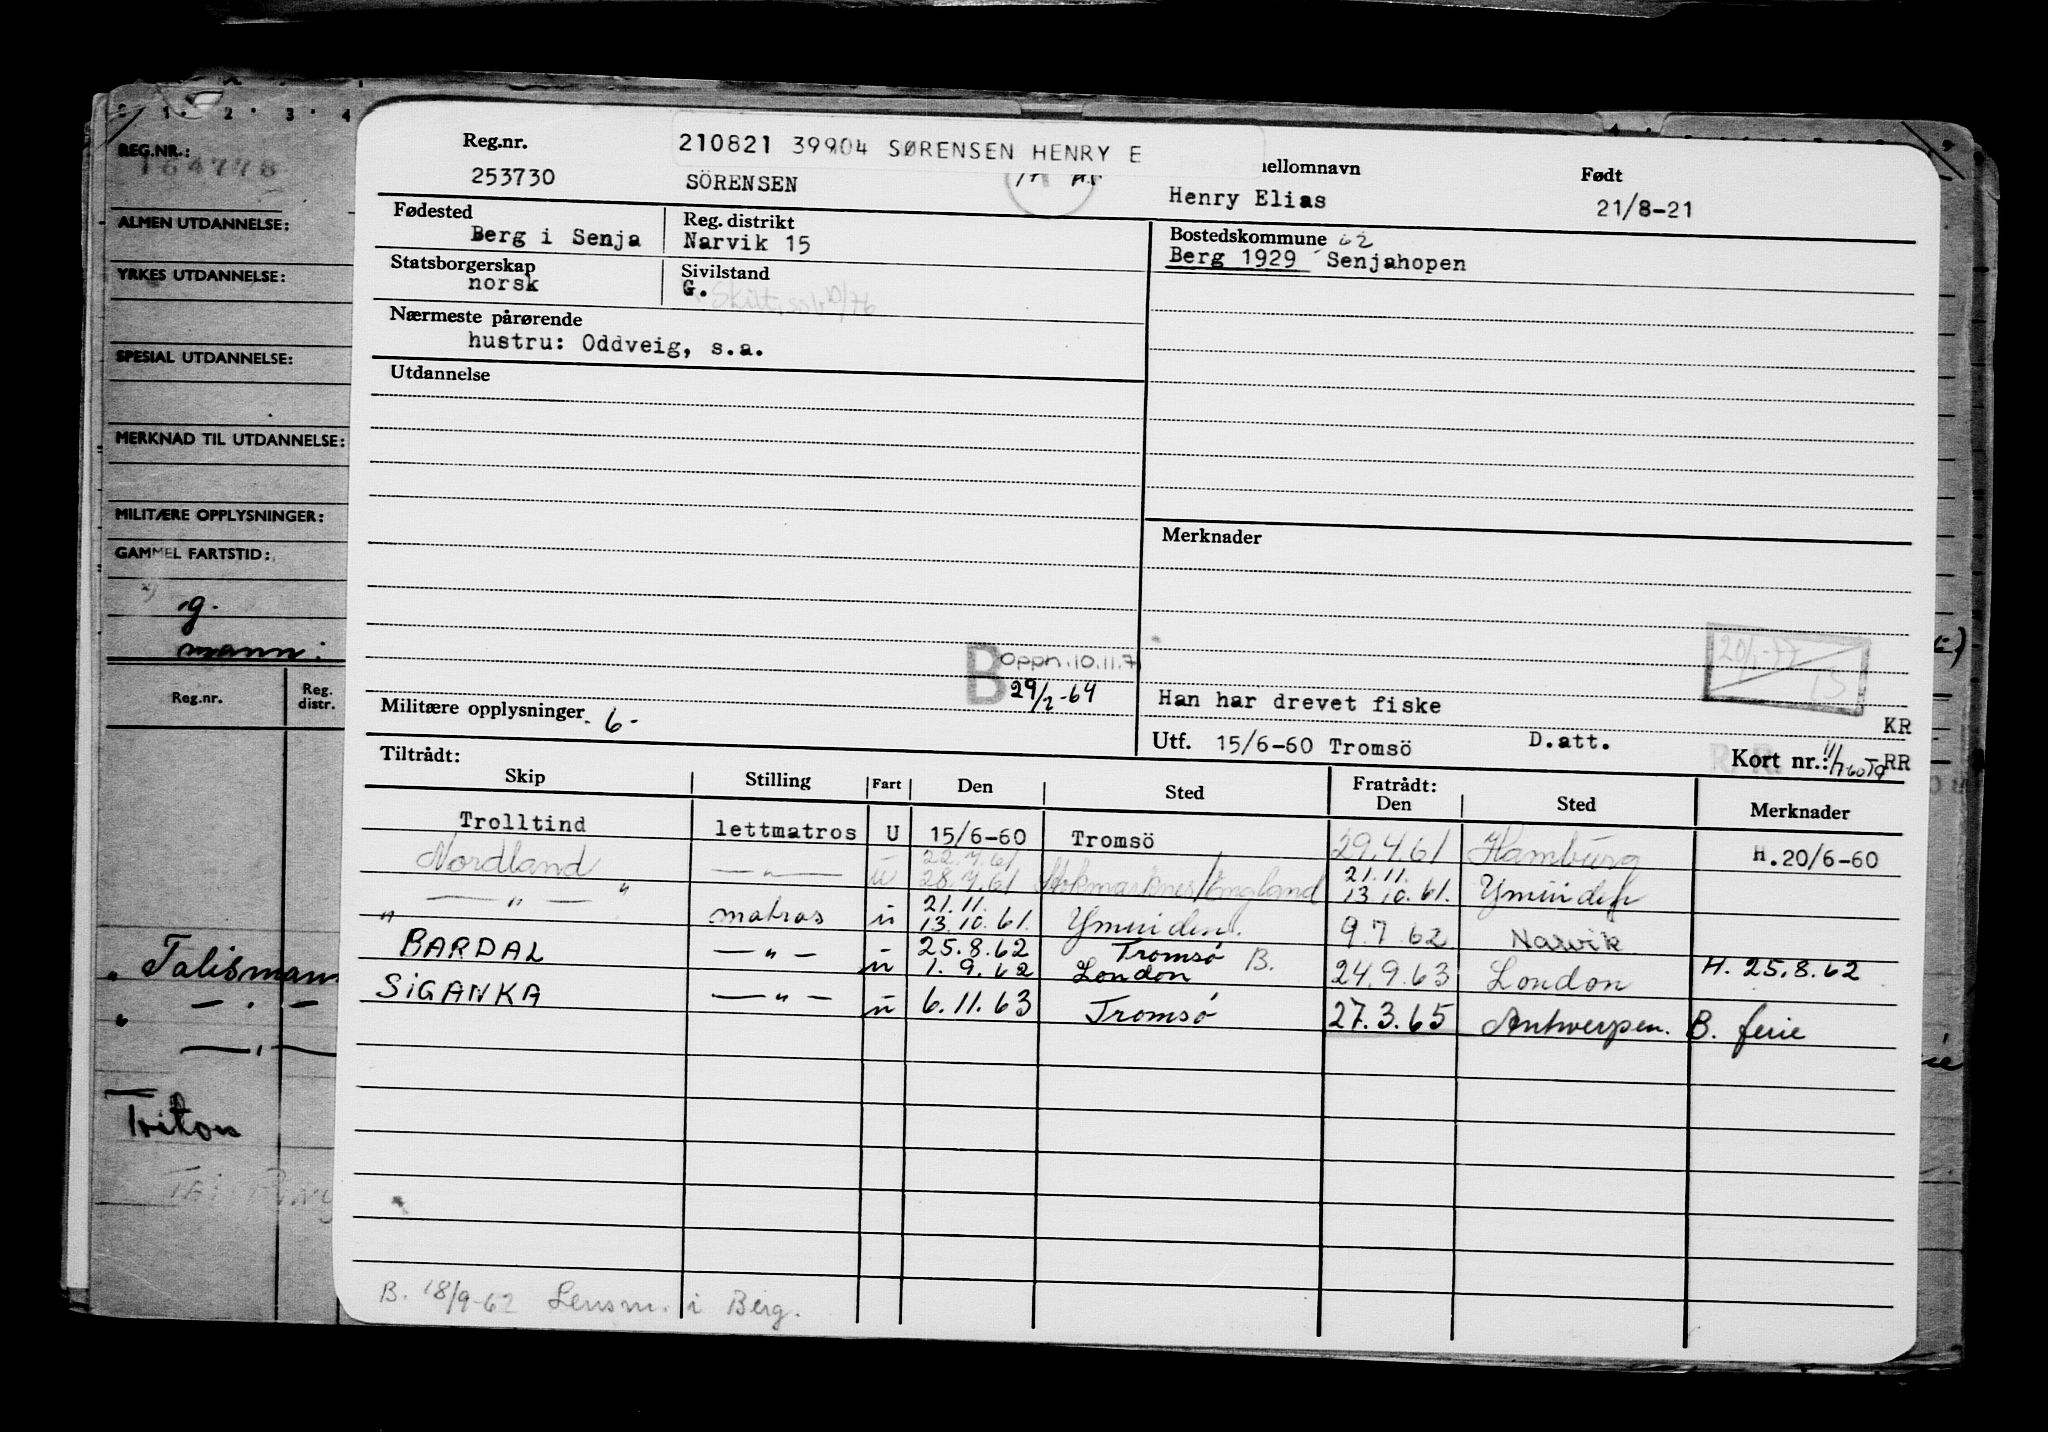 REG.NR.:
ALMEN UTDANNELSE:
YRKES UTDANNELSE:
SPESIAL UTDANNELSE:
MERKNAD TIL UTDANNELSE:
MILITÆRE OPPLYSNINGER:
GAMMEL FARTSTID:
g.
mann:
Reg.nr. Reg. distr.
" Talisman
— " —
Triton
Reg.nr. 210821 39904 SØRENSEN HENRY E ellomnavn Født
253730 SÖRENSEN Henry Elias 21/8-21
Fødested Reg. distrikt Bostedskommune 62
Berg i Senja Narvik 15 Berg 1929 Senjahopen
Statsborgerskap Sivilstand
norsk G.
Nærmeste pårørende
hustru: Oddveig, s.a.
Utdannelse
Merknader
20/1-77
15
B Oppn.10.11.7
29/2-64
Militære opplysninger - 6 -
Han har drevet fiske
KR
Utf. 15/6-60 Tromsö D.att. Kort nr.: RR
Tiltrådt: Fratrådt:
Skip Stilling Fart Den Sted Den Sted Merknader
Trolltind lettmatros U 15/6-60 Tromsö 29.4.61 Hamburg H.20/6-60
Nordland — " — u 22.7.61 28.7.61 Stokmarknes/England 21.11. 13.10.61. Ymuiden
" — " — " matros u 21.11. 13.10.61. Ymuiden. 9.7.62 Narvik
BARDAL — " — u 25.8.62 1.9.62 Tromsø London B. 24.9.63 London H. 25.8.62
SIGANKA — " — u 6.11.63 Tromsø 27.3.65 Antwerpen. B. ferie
B. 18/9-62 Lensm. i Berg.